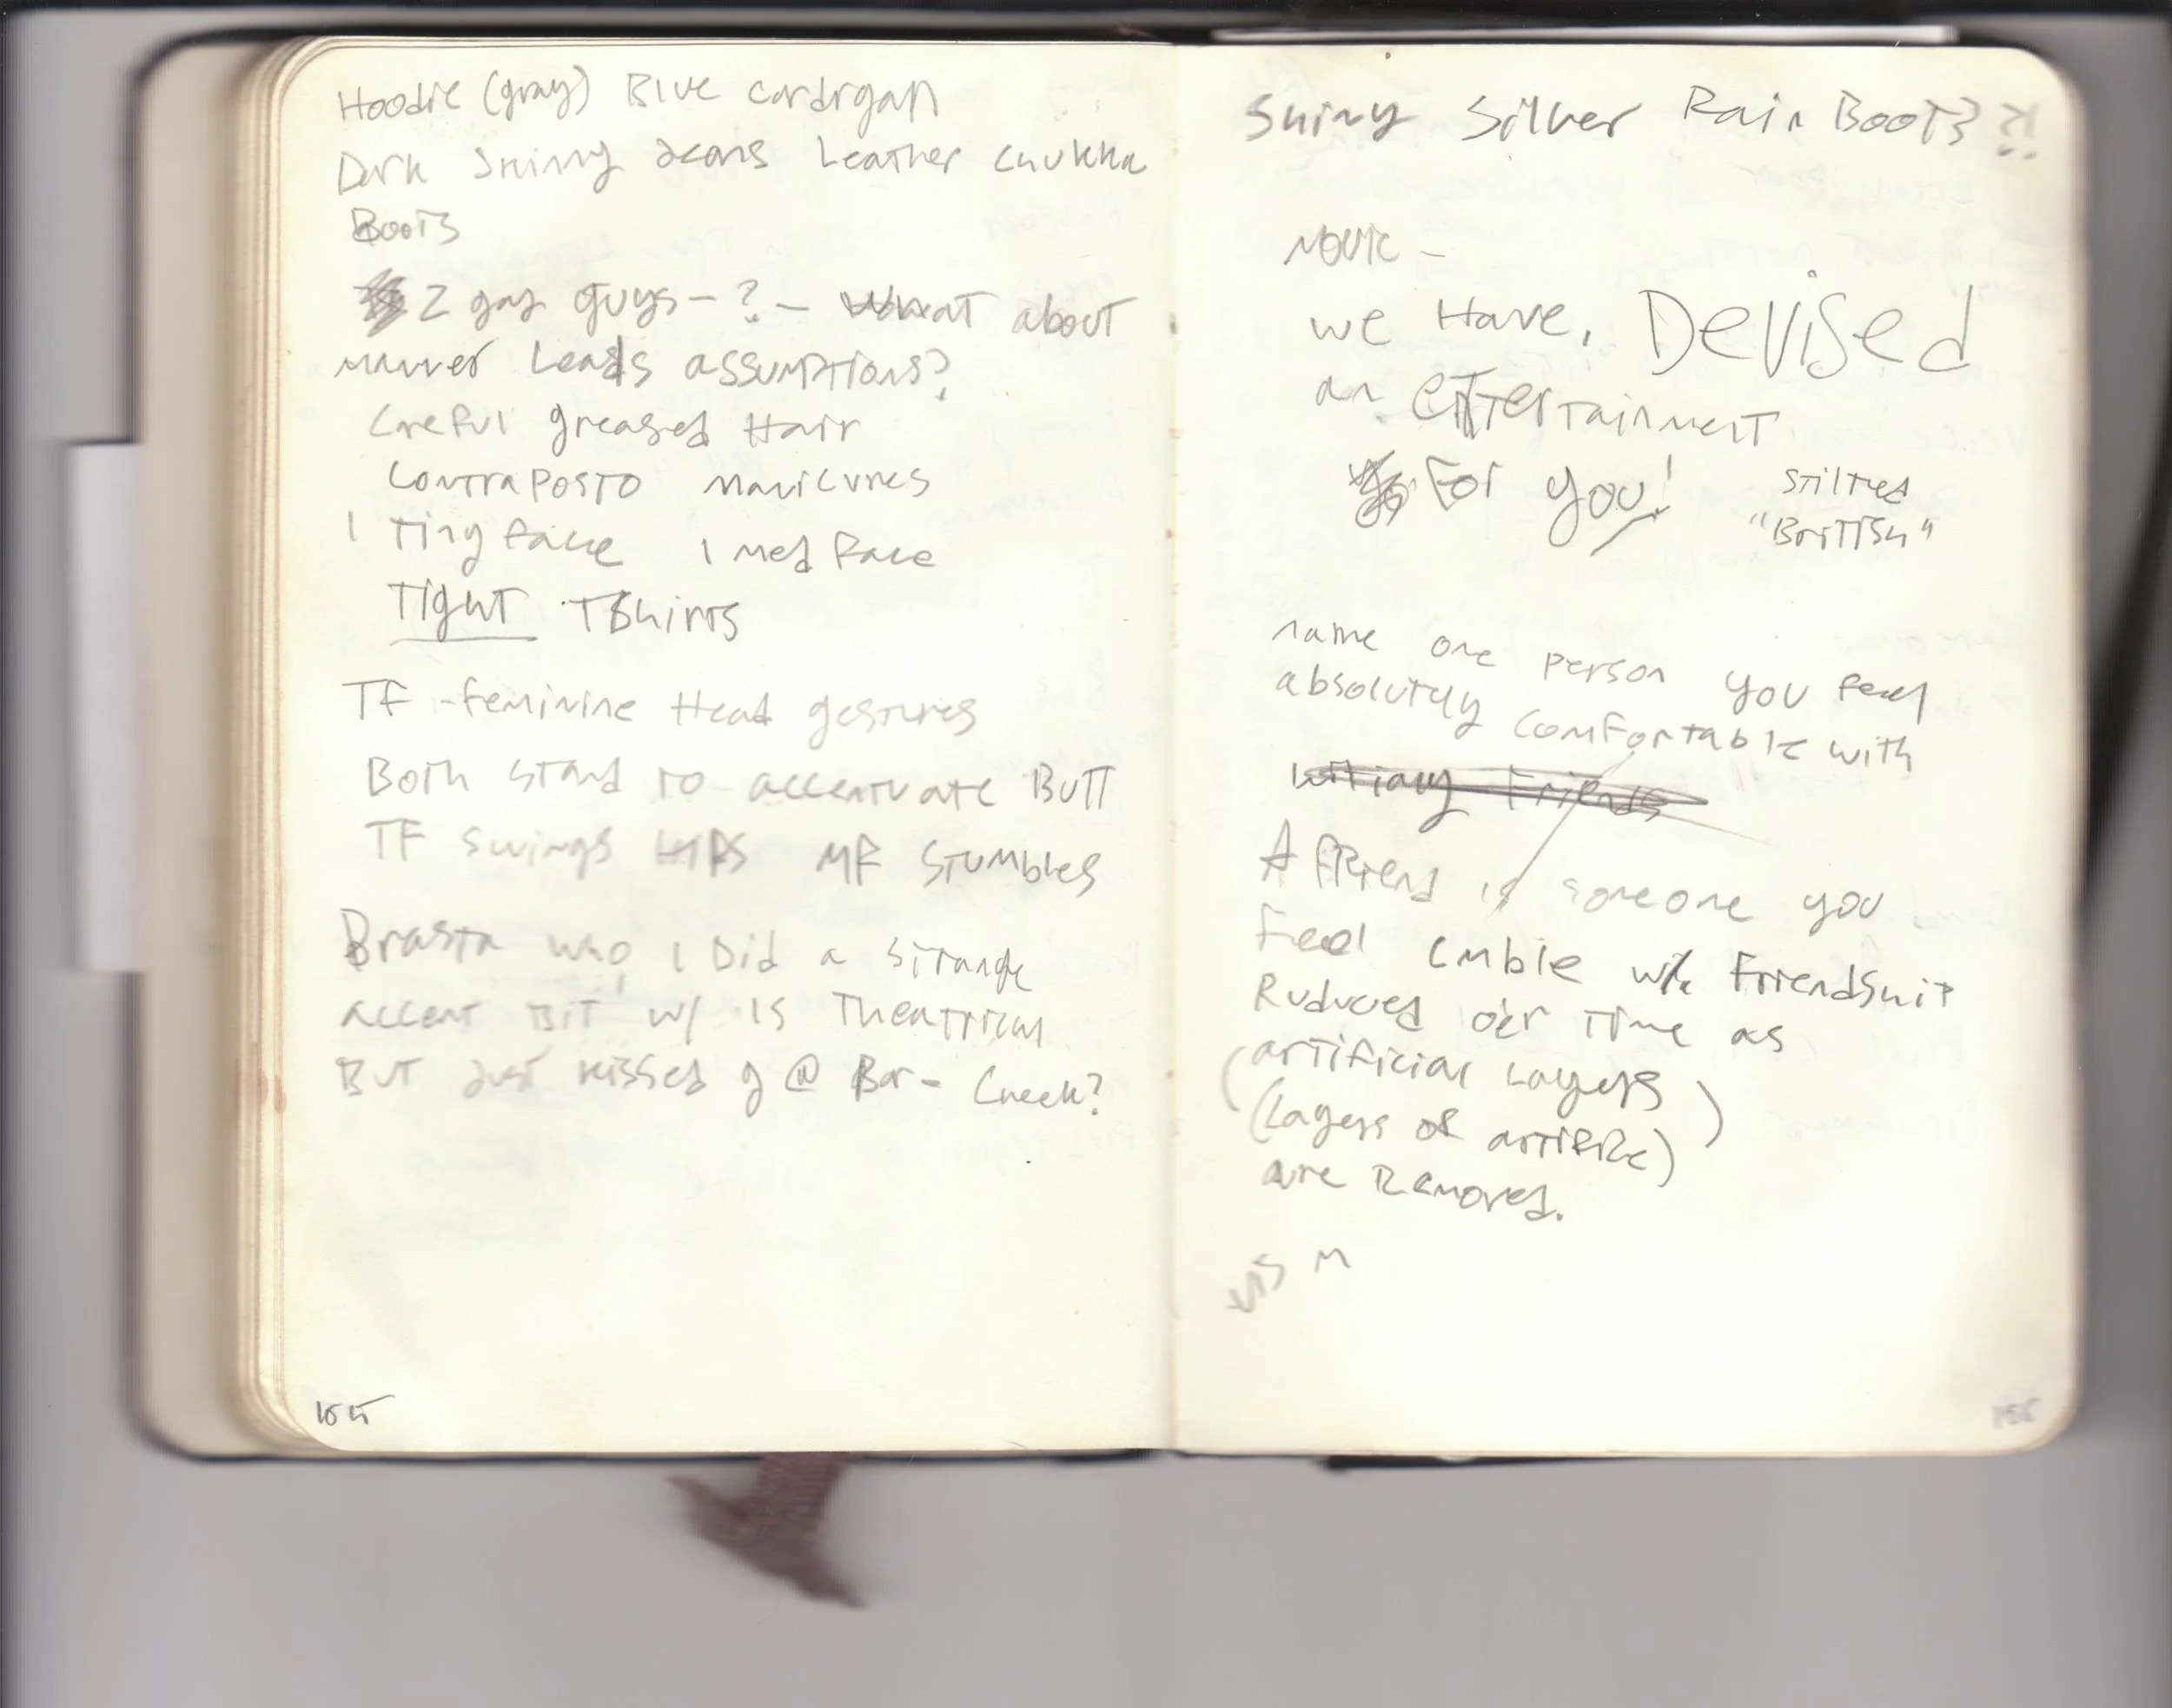 Hoodie (gray) Blue cardigan
Dark Skinny Jeans Leather chukka
Boots
2 gay guys - ? - What about
manner Leads assumptions?
Careful greased Hair
Contraposto manicures
1 Tiny face 1 med face
Tight TShirts
TF - feminine Head gestures
Both stand to accentuate Butt
TF swings HIPS MF Stumbles
who I Did a strange
accent Bit w/ is Theatrical
But just kissed g @ Bar - Cheek?
155
Shiny Silver Rain Boots?!
Movie -
we Have, Devised
an entertainment
For you!
Stilted
"British"
name one person you feel
absolutely comfortable with
Friends
A friend is someone you
Feel w/
o'er Time as
(artificial Layers
(Layers of artifice))
are Removed.
M